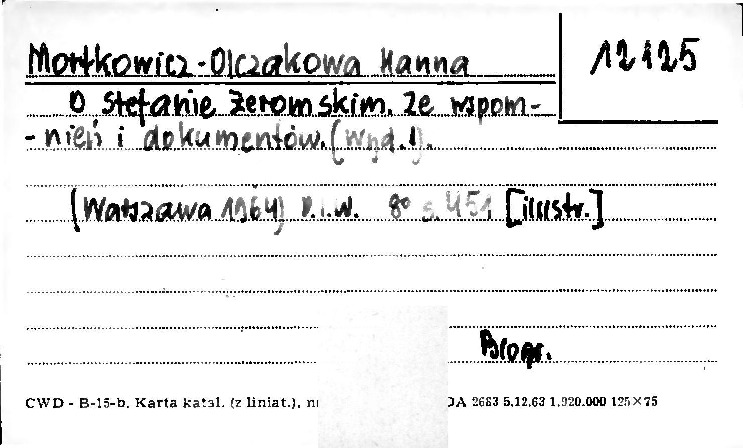 Mortkowicz-Olczakowa Hanna
12125
O Stefanie Żeromskim. Ze wspom-
-nień i dokumentów. (Wyd. 1).
(Warszawa 1964) P.I.W. 8° s. 451 [illustr.]
Biogr.
CWD - B-15-b. Karta katal. (z liniat.),
DA 2663 5.12.63 1.920.000 125×75